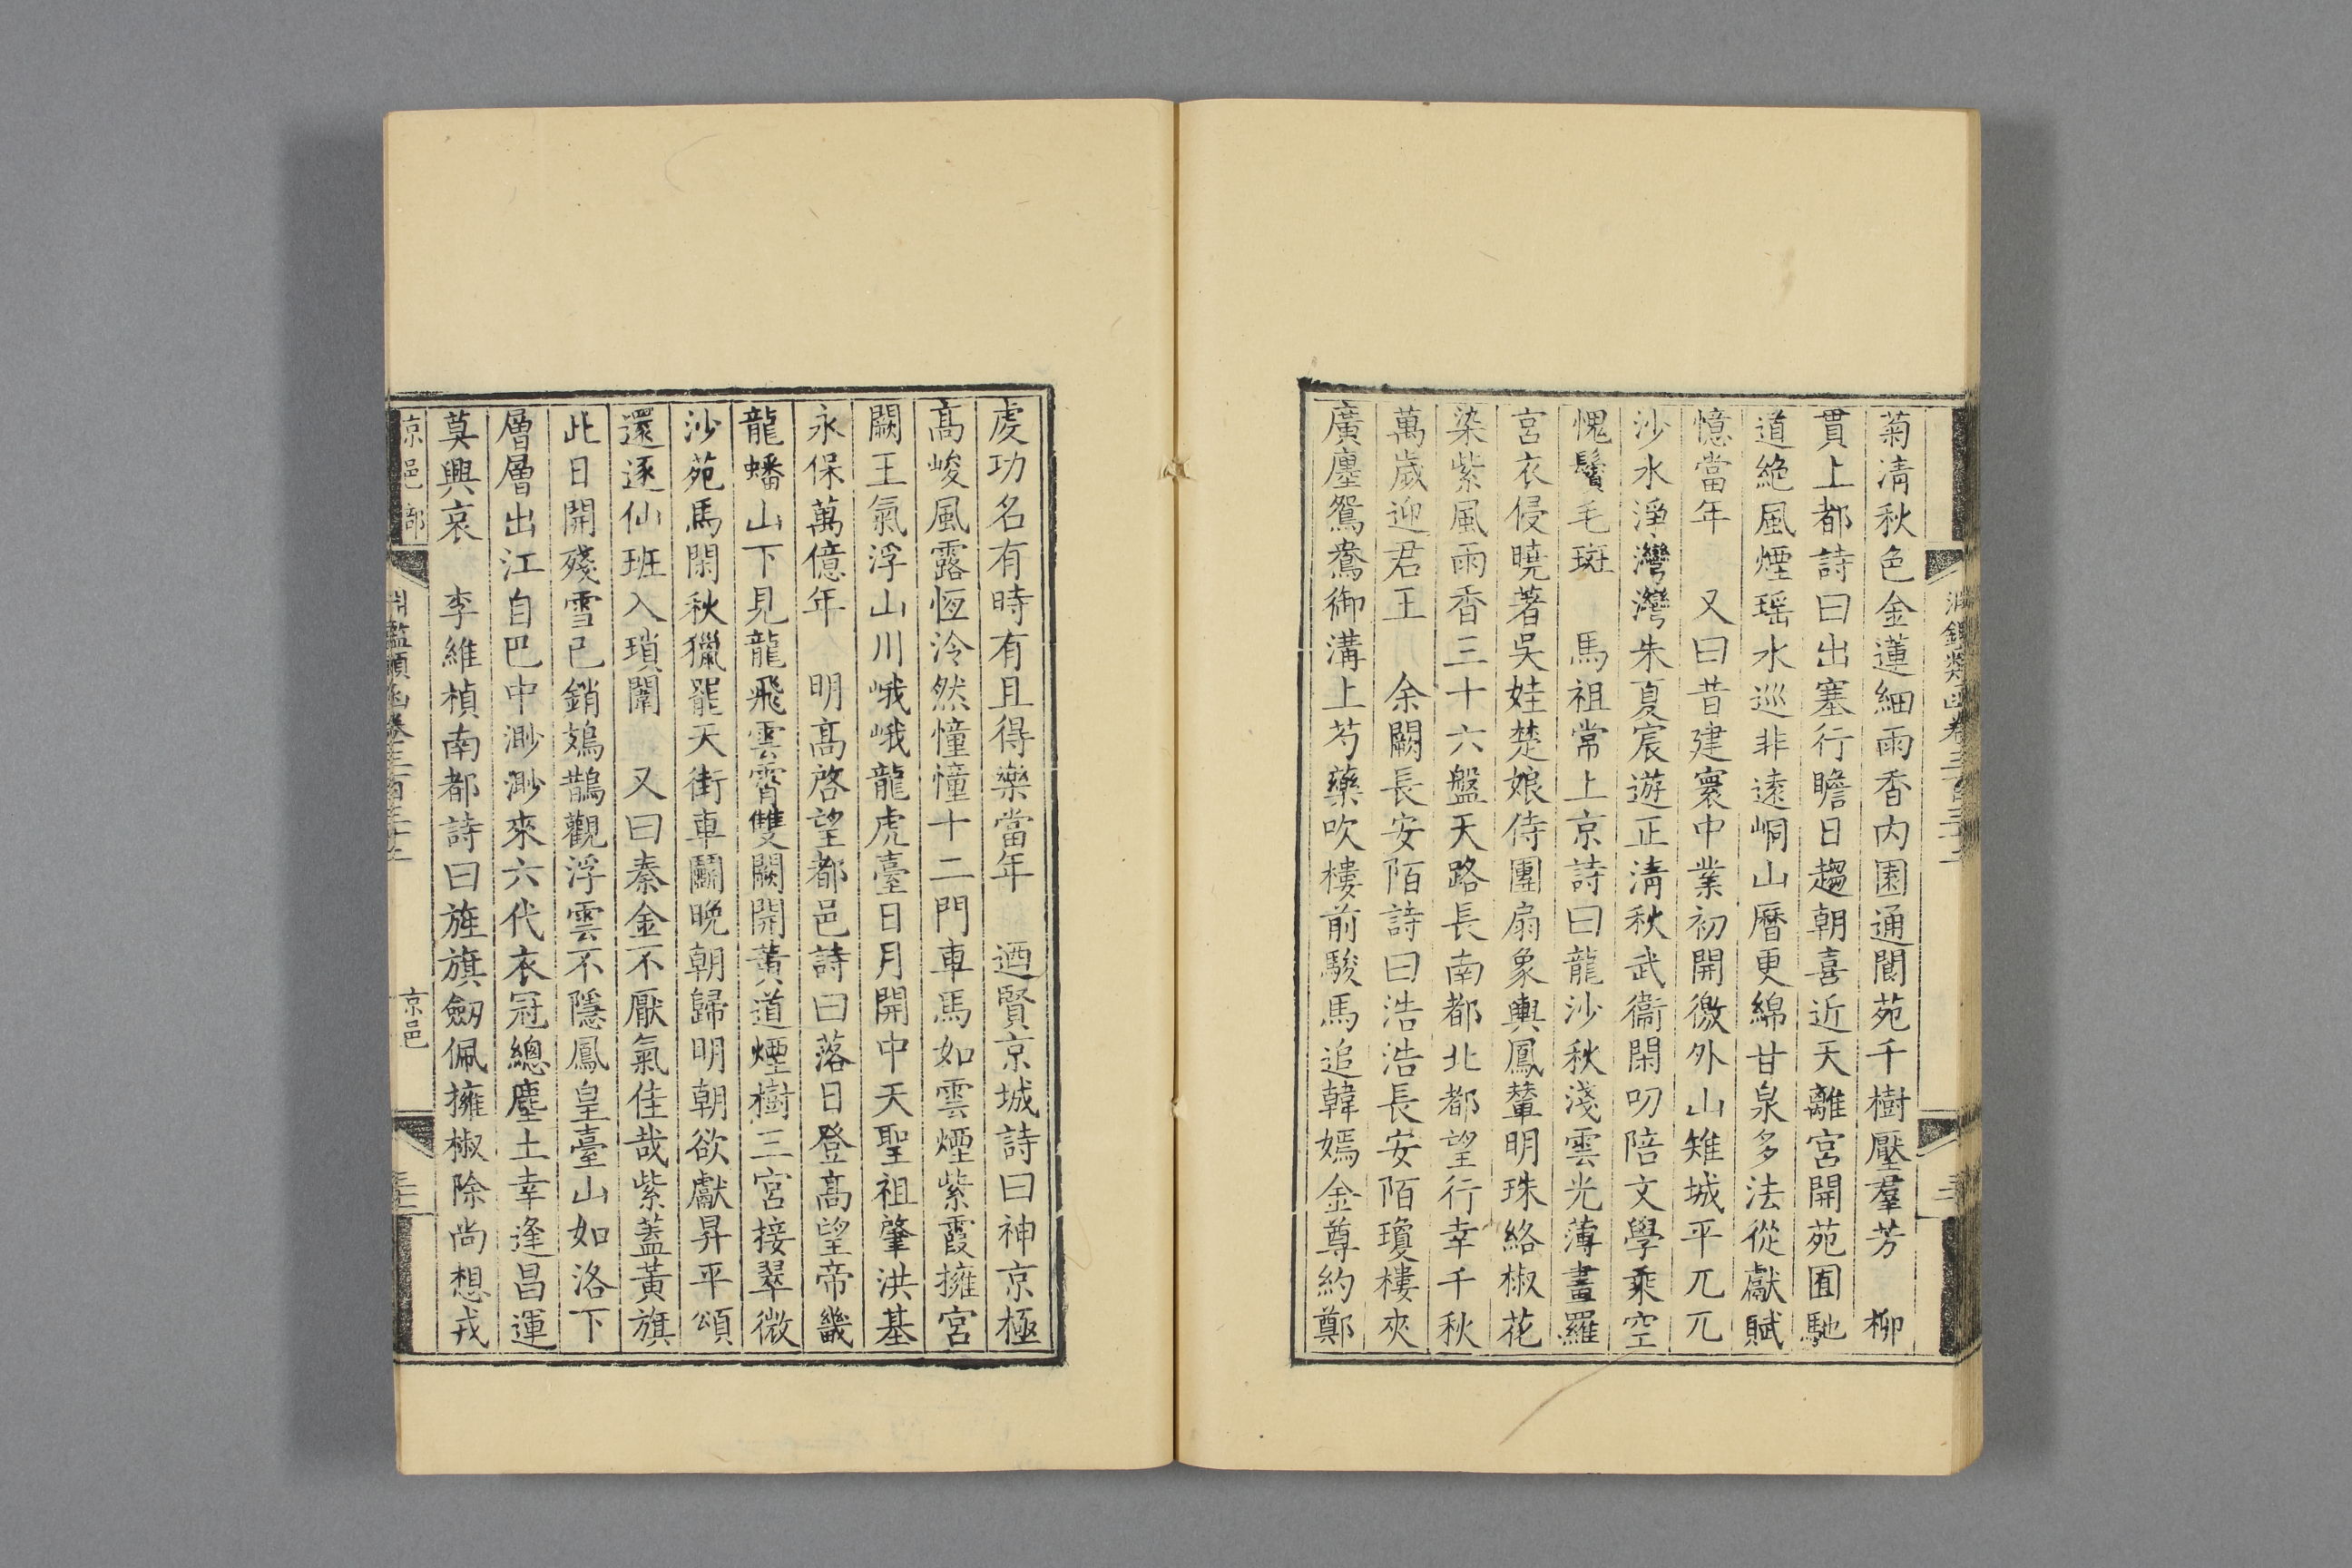 菊清秋色金蓮細雨香内園通閬苑千樹壓羣芳　柳
貫上都詩曰出塞行瞻日趨朝喜近天離宮開苑囿馳
道絶風煙瑶水巡非遠峒山曆更綿甘泉多法從獻賦
憶當年　又曰昔建寰中業初開徼外山雉城平兀兀
沙水淨灣灣朱夏宸遊正清秋武衞閑叨陪文學乘空
愧鬢毛斑　馬祖常上京詩曰龍沙秋淺雲光薄畫羅
宮衣侵曉著吳娃楚娘侍團扇象輿鳳輦明珠絡椒花
染紫風雨香三十六盤天路長南都北都望行幸千秋
萬歲迎君王　余闕長安陌詩曰浩浩長安陌瓊樓夾
廣廛鴛鴦御溝上芍藥吹樓前駿馬追韓嫣金尊約鄭
虔功名有時有且得樂當年　迺賢京城詩曰神京極
高峻風露恆泠然憧憧十二門車馬如雲煙紫霞擁宮
闕王氣浮山川峨峨龍虎臺日月開中天聖祖肇洪基
永保萬億年　明高啓望都邑詩曰落日登高望帝畿
龍蟠山下見龍飛雲霄雙闕開黃道煙樹三宮接翠微
沙苑馬閑秋獵罷天街車鬭晚朝歸明朝欲獻昇平頌
還逐仙班入瑣闈　又曰秦金不厭氣佳哉紫蓋黃旗
此日開殘雪已銷鳷鵲觀浮雲不隱鳳皇臺山如洛下
層層出江自巴中渺渺來六代衣冠總塵土幸逢昌運
莫興哀　李維楨南都詩曰旌旗劒佩擁椒除尚想戎
京邑部
淵鑑類函卷三百三十三
京邑